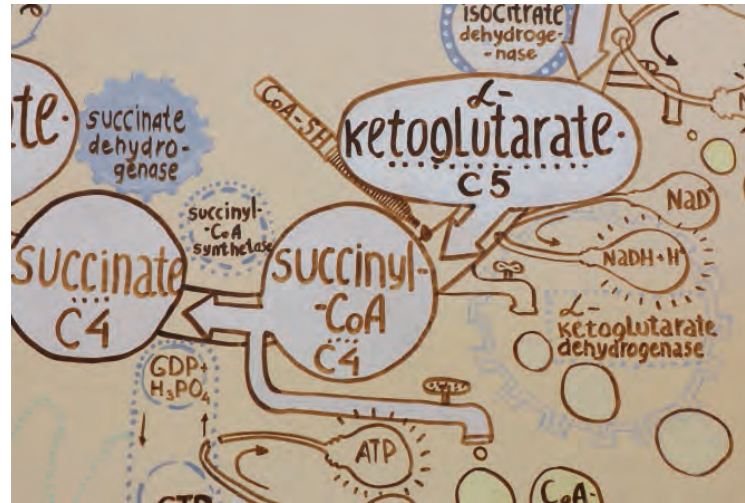 ISOCITRATE
dehydroge-
-nase
te.
succinate
dehydro-
genase
CoA-SH
α-
ketoglutarate.
C5
succinyl-
-CoA
synthetase
NaD⁺
NaDH+H⁺
succinate
C4
succinyl-
-CoA
C4
α-
ketoglutarate
dehydrogenase
GDP+
H₃PO₄
ATP
CoA-